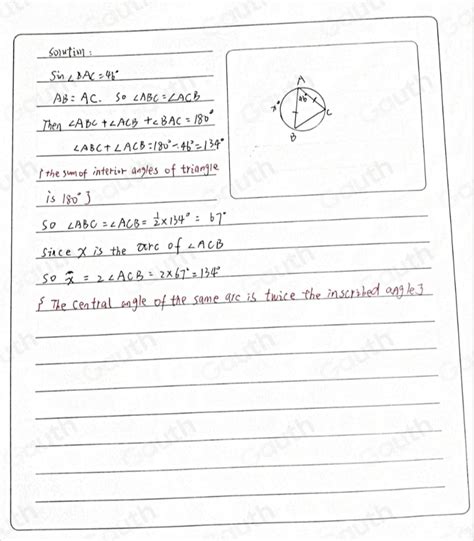 Solution:
Sin ∠BAC = 46°
AB = AC. So ∠ABC = ∠ACB
Then ∠ABC + ∠ACB + ∠BAC = 180°
∠ABC + ∠ACB = 180° - 46° = 134°
{ the sum of interior angles of triangle
is 180° }
So ∠ABC = ∠ACB = ½ × 134° = 67°
Since x is the arc of ∠ACB
So x = 2∠ACB = 2×67° = 134°
{ The central angle of the same arc is twice the inscribed angle }
A
46
x°
C
B
Gauth